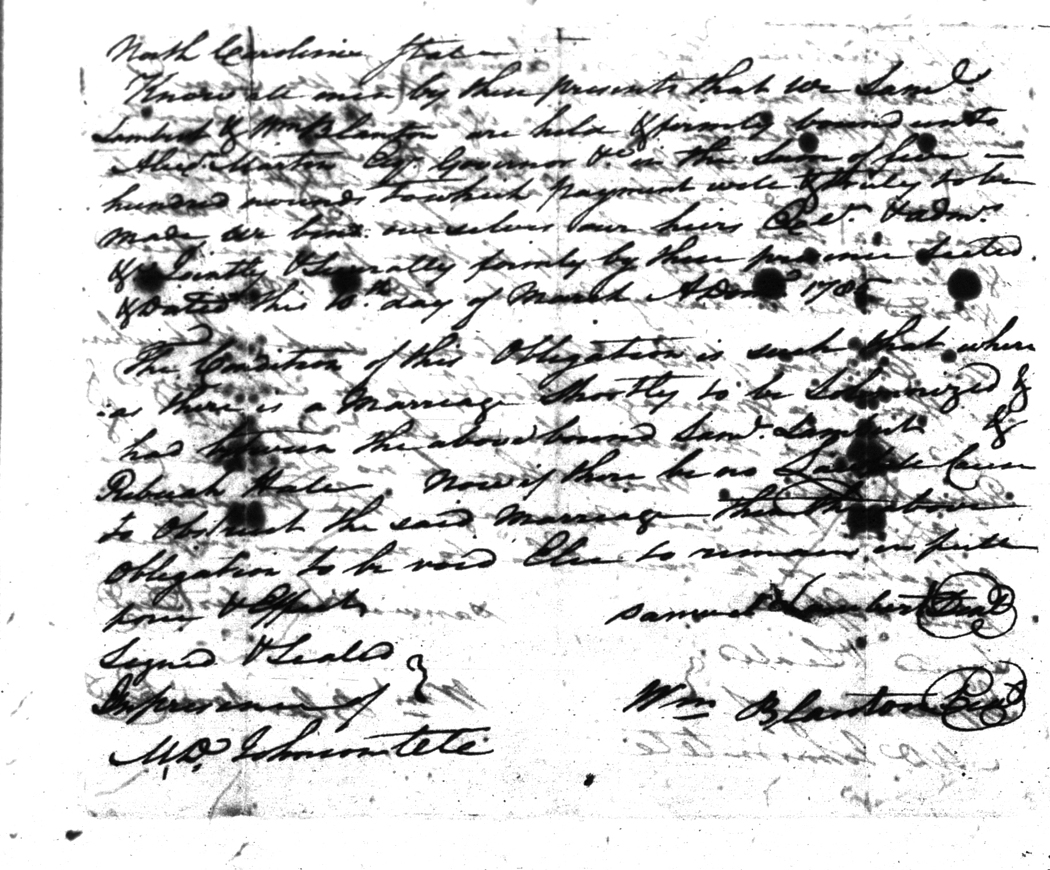 North Carolina State
Know all men by these presents that we Saml.
Lambert & Wm Blanton are held & firmly bound unto
Alexr. Martin Esqr. Governor &c in the Sum of five
hundred pounds to which payment well & truly to be
made, we bind ourselves our heirs Exrs. & admrs.
& Jointly & Severally firmly by these presence Sealed.
& Dated this 10th day of March A Dom
The Condition of this Obligation is such that where
as there is a Marriage Shortly to be Solemnized &
had between the above bound Saml. Lambert &
Now if there be no Lawfull Cause
to obstruct the said Marriage then the above
Obligation to be void Else to remain in full
force & Effect
Samuel Lambert Seal
Signed & Sealed
In presence of
Wm Blanton Seal